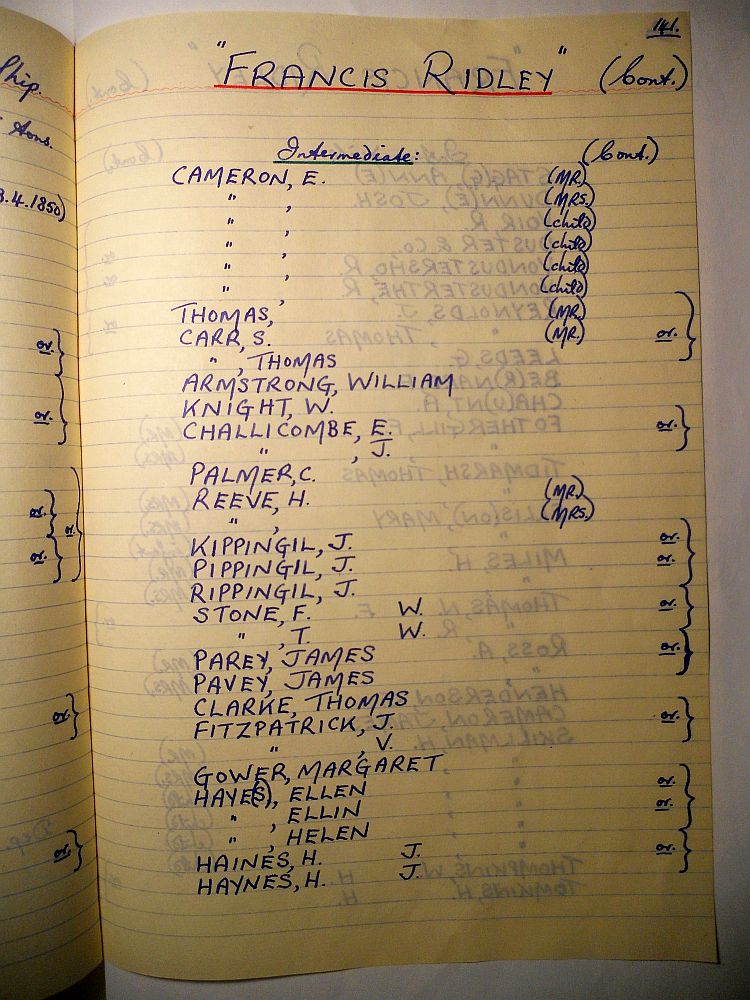 141.
"FRANCIS RIDLEY" (Cont.)
Intermediate: (Cont.)
CAMERON, E. (MR.)
" , (MRS.)
" , (child)
" , (child)
" , (child)
" , (child)
THOMAS, (MR.)
CARR, S. (MR.) or.
" , THOMAS
ARMSTRONG, WILLIAM
KNIGHT, W.
CHALLICOMBE, E. or.
" , J.
PALMER, C.
REEVE, H. (MR.)
" , (MRS.)
KIPPINGIL, J. or.
PIPPINGIL, J. or.
RIPPINGIL, J.
STONE, F. W. or.
" , T. W.
PAREY, JAMES or.
PAVEY, JAMES
CLARKE, THOMAS
FITZPATRICK, J. or.
" , V.
GOWER, MARGARET
HAYE(S), ELLEN or.
" , ELLIN or.
" , HELEN
HAINES, H. J. or.
HAYNES, H. J.
Ship.
Aons.
.4.1850)
or.
or.
or.
or.
or.
or.
or.